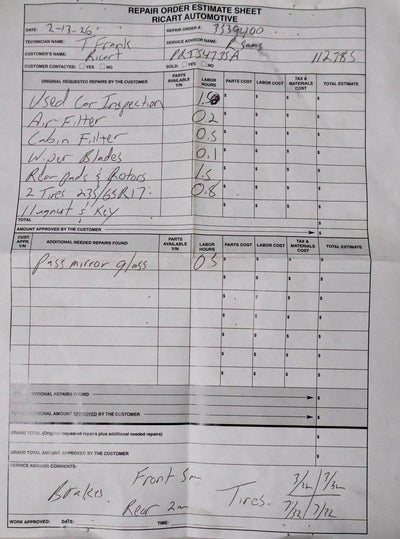 REPAIR ORDER ESTIMATE SHEET
RICART AUTOMOTIVE
DATE: 2-13-26 REPAIR ORDER #: 3539400
TECHNICIAN NAME: T Frank SERVICE ADVISOR NAME:
CUSTOMER'S NAME: Ricart PRT54735A 112785
CUSTOMER CONTACTED: YES NO SOLD: YES NO
ORIGINAL REQUESTED REPAIRS BY THE CUSTOMER PARTS AVAILABLE Y/N LABOR HOURS PARTS COST LABOR COST TAX & MATERIALS COST TOTAL ESTIMATE
Used Car Inspection $ $ $ $
Air Filter 0.2 $ $ $ $
Cabin Filter 0.5 $ $ $ $
Wiper Blades 0.1 $ $ $ $
Rear pads & Rotors 1.5 $ $ $ $
2 Tires 275/65R17. 0.8 $ $ $ $
Lugnut's Key $ $ $ $
TOTAL
AMOUNT APPROVED BY THE CUSTOMER $
CUST. APPR. Y/N ADDITIONAL NEEDED REPAIRS FOUND PARTS AVAILABLE Y/N LABOR HOURS PARTS COST LABOR COST TAX & MATERIALS COST TOTAL ESTIMATE
Pass mirror glass 0.5 $ $ $ $
$ $ $ $
$ $ $ $
$ $ $ $
$ $ $ $
$ $ $ $
ADDITIONAL REPAIRS FOUND $
ADDITIONAL AMOUNT APPROVED BY THE CUSTOMER $
GRAND TOTAL (Original requested repairs plus additional needed repairs) $
GRAND TOTAL AMOUNT APPROVED BY THE CUSTOMER $
SERVICE ADVISOR COMMENTS:
Brakes Front 5m Tires. 3/32 7/32
Rear 2m 7/32 7/32
WORK APPROVED: DATE: TIME: